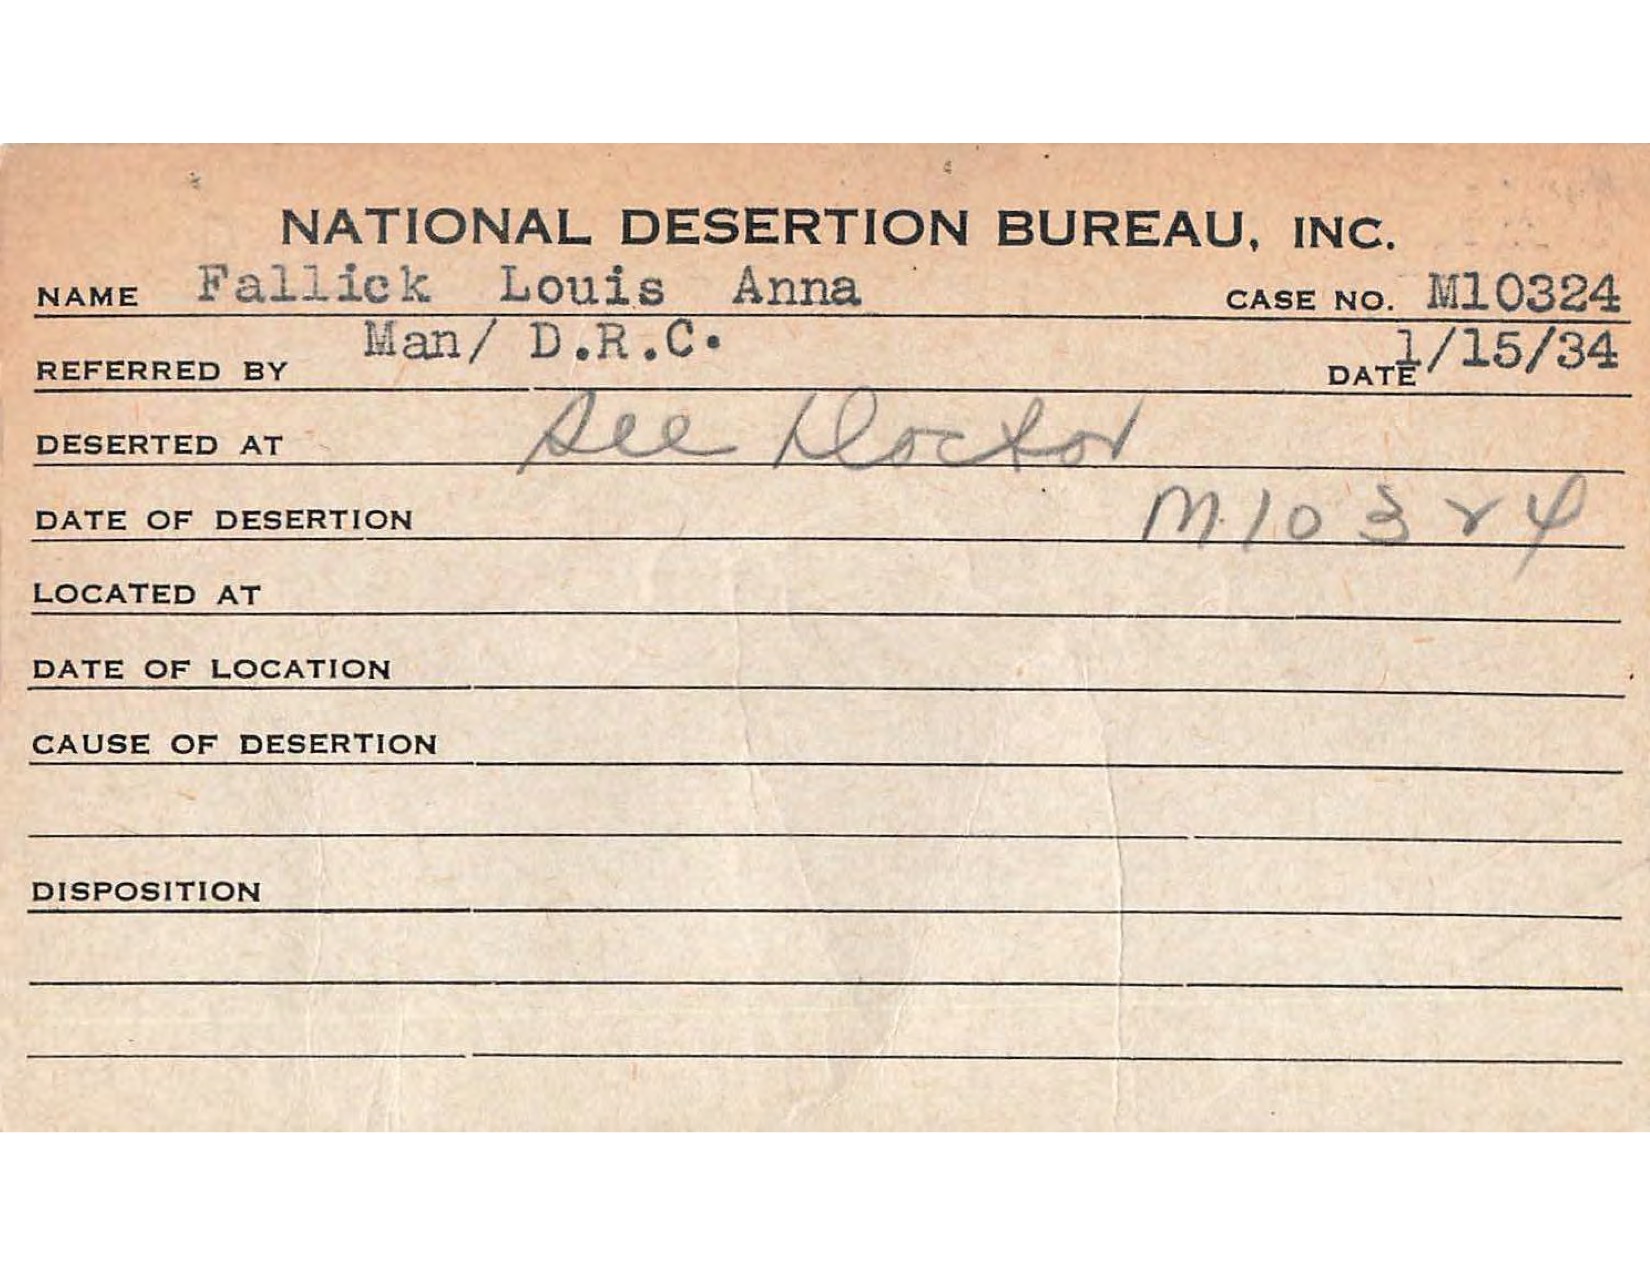 NATIONAL DESERTION BUREAU, INC.
NAME Fallick Louis Anna CASE NO. M10324
REFERRED BY Man/ D.R.C. DATE 1/15/34
DESERTED AT See Doctor
DATE OF DESERTION M10324
LOCATED AT
DATE OF LOCATION
CAUSE OF DESERTION
DISPOSITION